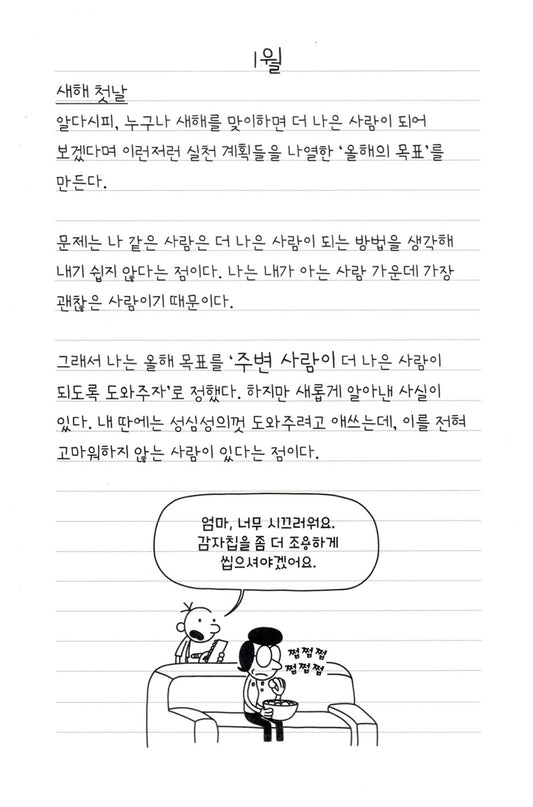 1월
새해 첫날
알다시피, 누구나 새해를 맞이하면 더 나은 사람이 되어
보겠다며 이런저런 실천 계획들을 나열한 ‘올해의 목표’를
만든다.
문제는 나 같은 사람은 더 나은 사람이 되는 방법을 생각해
내기 쉽지 않다는 점이다. 나는 내가 아는 사람 가운데 가장
괜찮은 사람이기 때문이다.
그래서 나는 올해 목표를 ‘주변 사람이 더 나은 사람이
되도록 도와주자’로 정했다. 하지만 새롭게 알아낸 사실이
있다. 내 딴에는 성심성의껏 도와주려고 애쓰는데, 이를 전혀
고마워하지 않는 사람이 있다는 점이다.
엄마, 너무 시끄러워요.
감자칩을 좀 더 조용하게
씹으셔야겠어요.
쩝쩝쩝
쩝쩝쩝